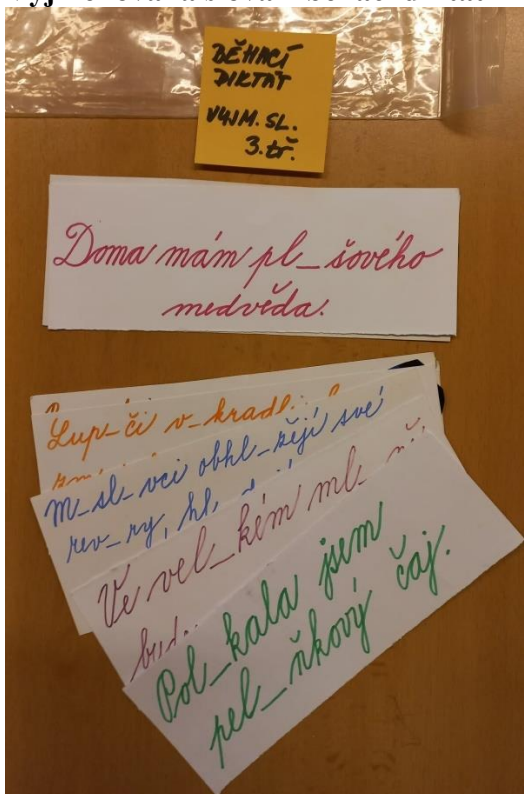 BĚHACÍ
DIKTÁT
VYJM. SL.
3. tř.
Doma mám pl_šového
medvěda.
Lup_či v_kradl
M_sl_vci obhl_žejí své
rev_ry, hl
Ve vel_kém ml_
bud
Pol_kala jsem
pel_ňkový čaj.